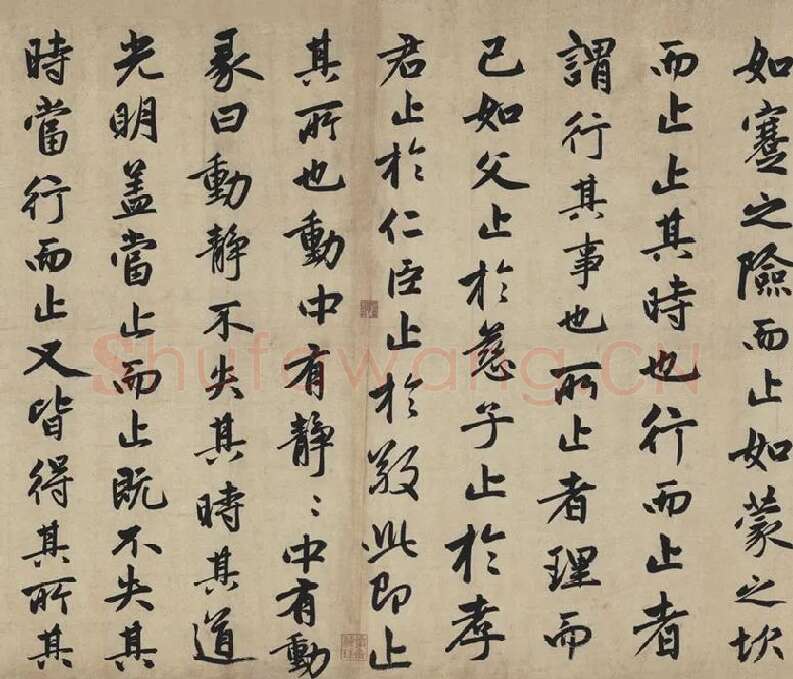 如蹇之險而止如蒙之坎
而止止其時也行而止者
謂行其事也所止者理而
已如父止於慈子止於孝
君止於仁臣止於敬此即止
其所也動中有靜〻中有動
彖曰動靜不失其時其道
光明盖當止而止既不失其
時當行而止又皆得其所其
Shufawang.CN